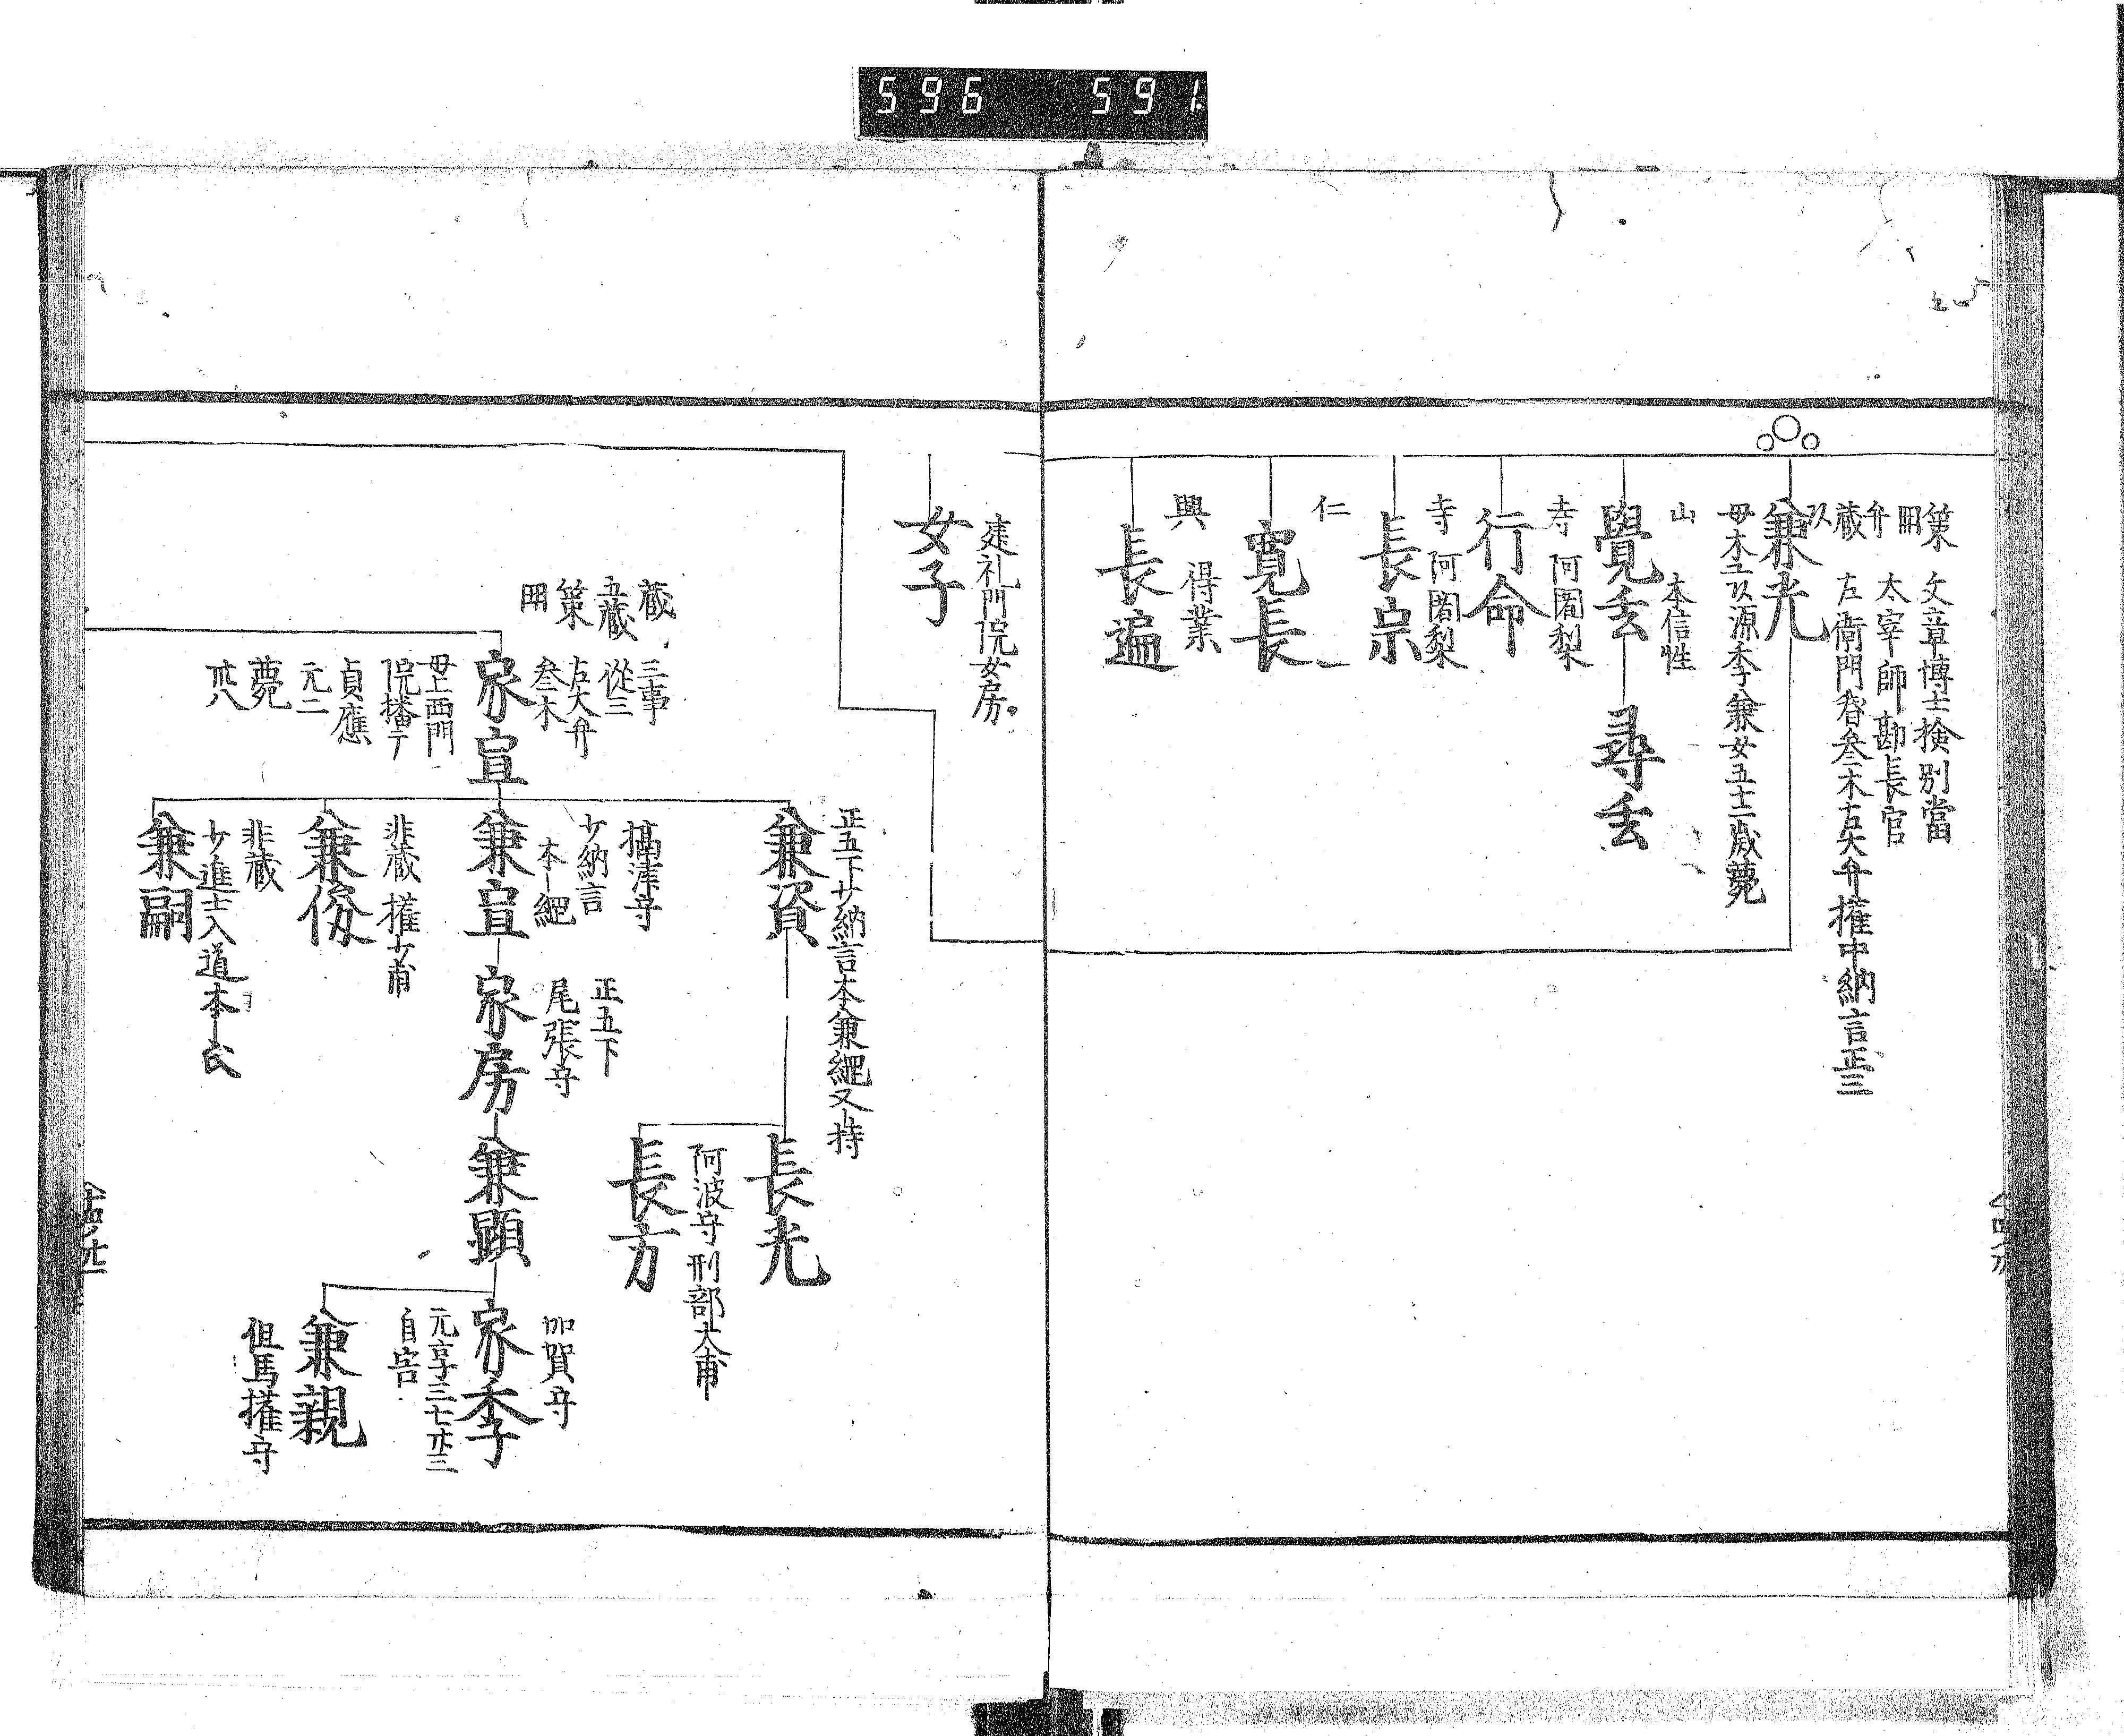 596 591
策 文章博士検別當
弁 太宰師勘長官
蔵 左衛門督叄木右大弁權中納言正三
兼光
母木工頭源季兼女五十二歳薨
山 本信性
覺玄
尋玄
寺 阿闍梨
行命
寺 阿闍梨
長宗
仁
寛長
興 得業
長遍
建礼門院女房
女子
正五下少納言本兼綱又持
兼資
長光
阿波守刑部大甫
長方
蔵 三事
五蔵 從三
策 右大弁
叄木
家宣
母上西門
院播广
貞應
元二
薨
卅八
攝津守
少納言
本綱
兼宣
正五下
尾張守
家房
兼顕
加賀守
家季
元亨三七廿三
自害
兼親
但馬權守
非蔵 權少甫
兼俊
非蔵
少進士入道本氏
兼嗣